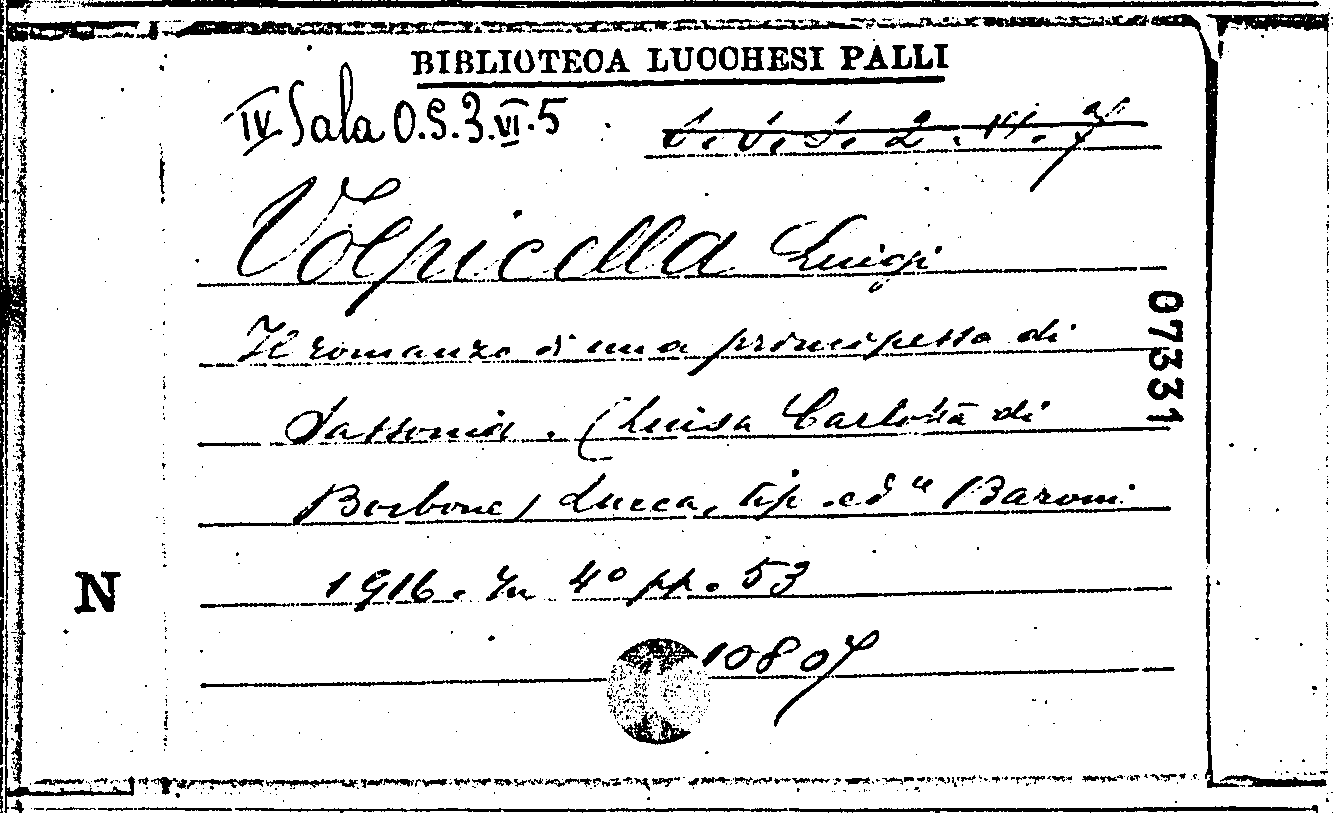 BIBLIOTECA LUCCHESI PALLI
IV Sala O.S.3.VI.5
Volpicella Luigi
Il romanzo di una principessa di
Sassonia. (Luisa Carlotta di
Borbone) Lucca, tip. ed.ce Baroni
1916. In 4º pp. 53
10807
07331
N